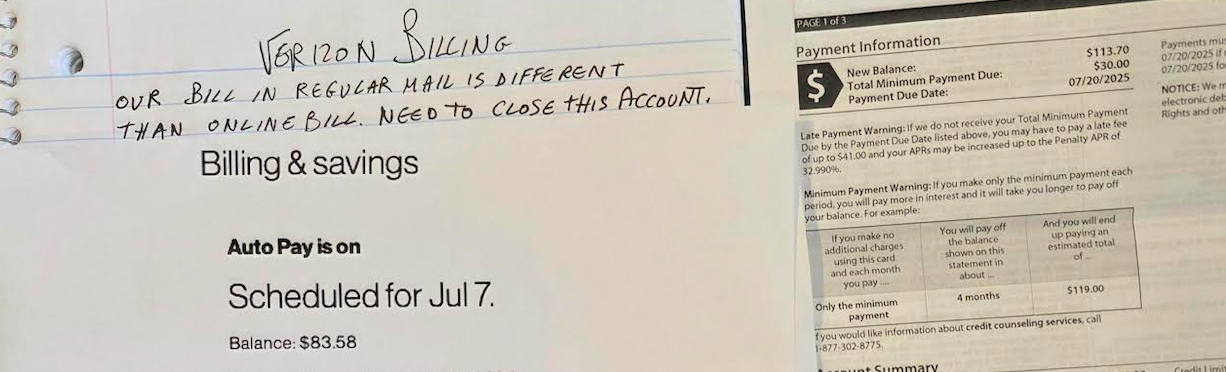 VERIZON BILLING
OUR BILL IN REGULAR MAIL IS DIFFERENT
THAN ONLINE BILL. NEED TO CLOSE THIS ACCOUNT.
Billing & savings
Auto Pay is on
Scheduled for Jul 7.
Balance: $83.58
PAGE 1 of 3
Payment Information
New Balance: $113.70
Total Minimum Payment Due: $30.00
Payment Due Date: 07/20/2025
Late Payment Warning: If we do not receive your Total Minimum Payment
Due by the Payment Due Date listed above, you may have to pay a late fee
of up to $41.00 and your APRs may be increased up to the Penalty APR of
32.990%.
Minimum Payment Warning: If you make only the minimum payment each
period, you will pay more in interest and it will take you longer to pay off
your balance. For example:
If you make no
additional charges
using this card
and each month
you pay ....
You will pay off
the balance
shown on this
statement in
about ...
And you will end
up paying an
estimated total
of ...
Only the minimum
payment
4 months
$119.00
f you would like information about credit counseling services, call
1-877-302-8775.
Account Summary
Payments
07/20/2025 if
07/20/2025 fo
NOTICE: We
electronic deb
Rights and oth
Credit